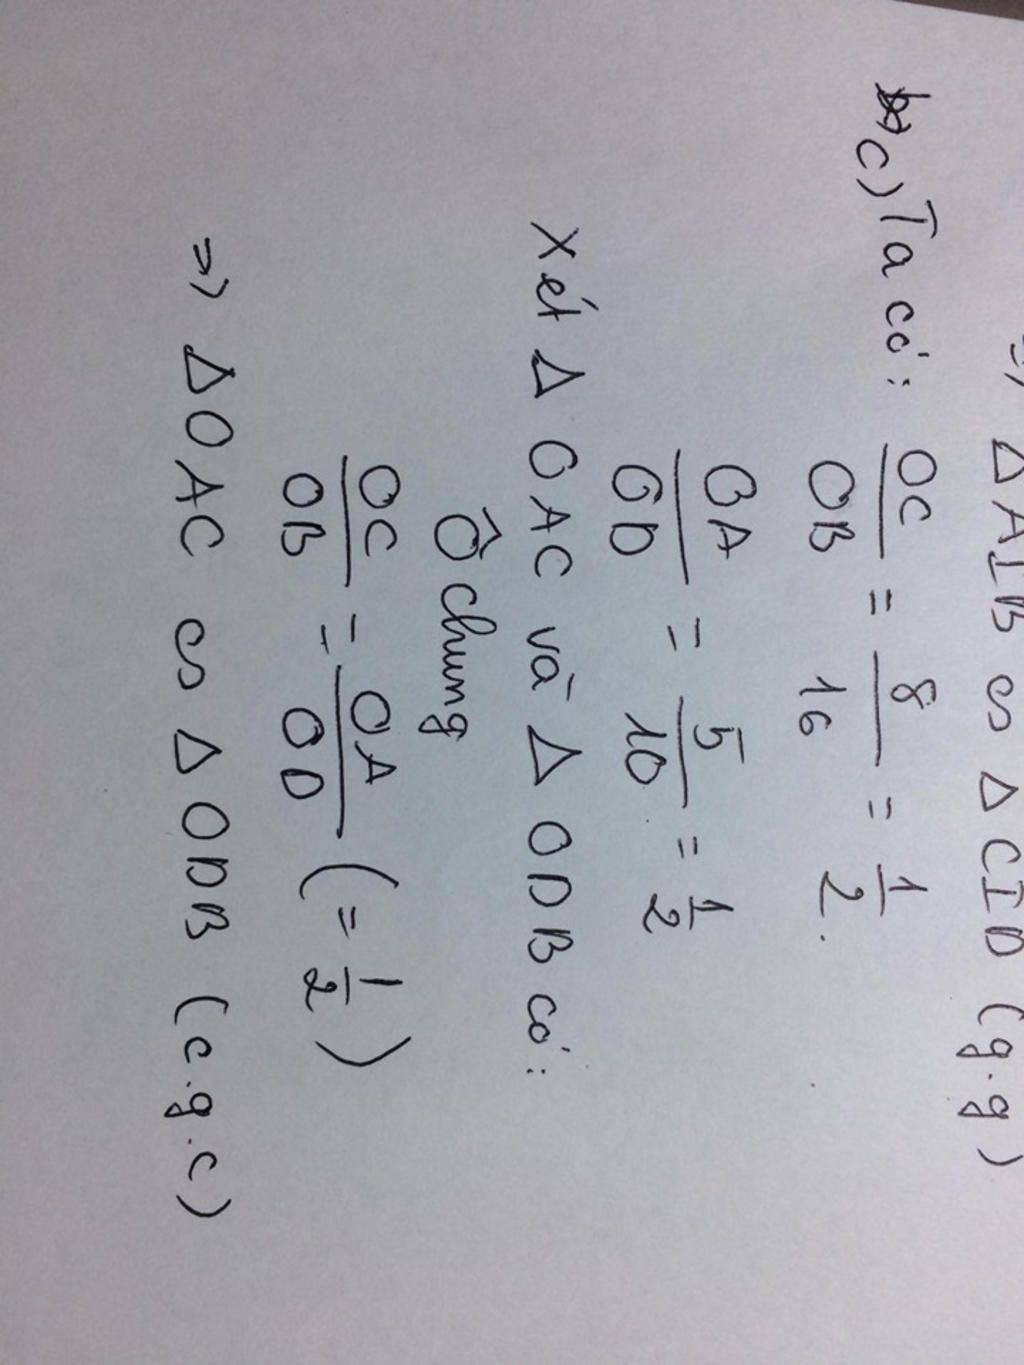 ΔAIB ∽ ΔCID (g.g)
c) Ta có: OC/OB = 8/16 = 1/2.
OA/OD = 5/10 = 1/2
Xét Δ OAC và Δ ODB có:
Ô chung
OC/OB = OA/OD (= 1/2)
=> ΔOAC ∽ Δ ODB (c.g.c)